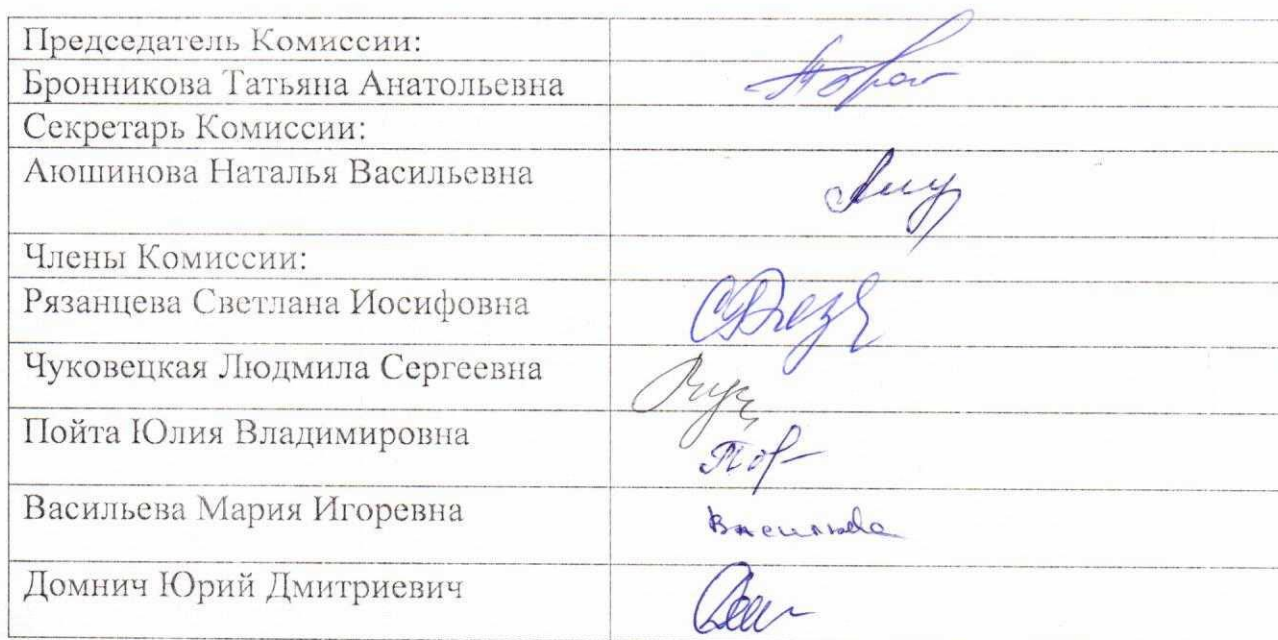 Председатель Комиссии:
Бронникова Татьяна Анатольевна
Секретарь Комиссии:
Аюшинова Наталья Васильевна
Члены Комиссии:
Рязанцева Светлана Иосифовна
Чуковецкая Людмила Сергеевна
Пойта Юлия Владимировна
Васильева Мария Игоревна
Домнич Юрий Дмитриевич